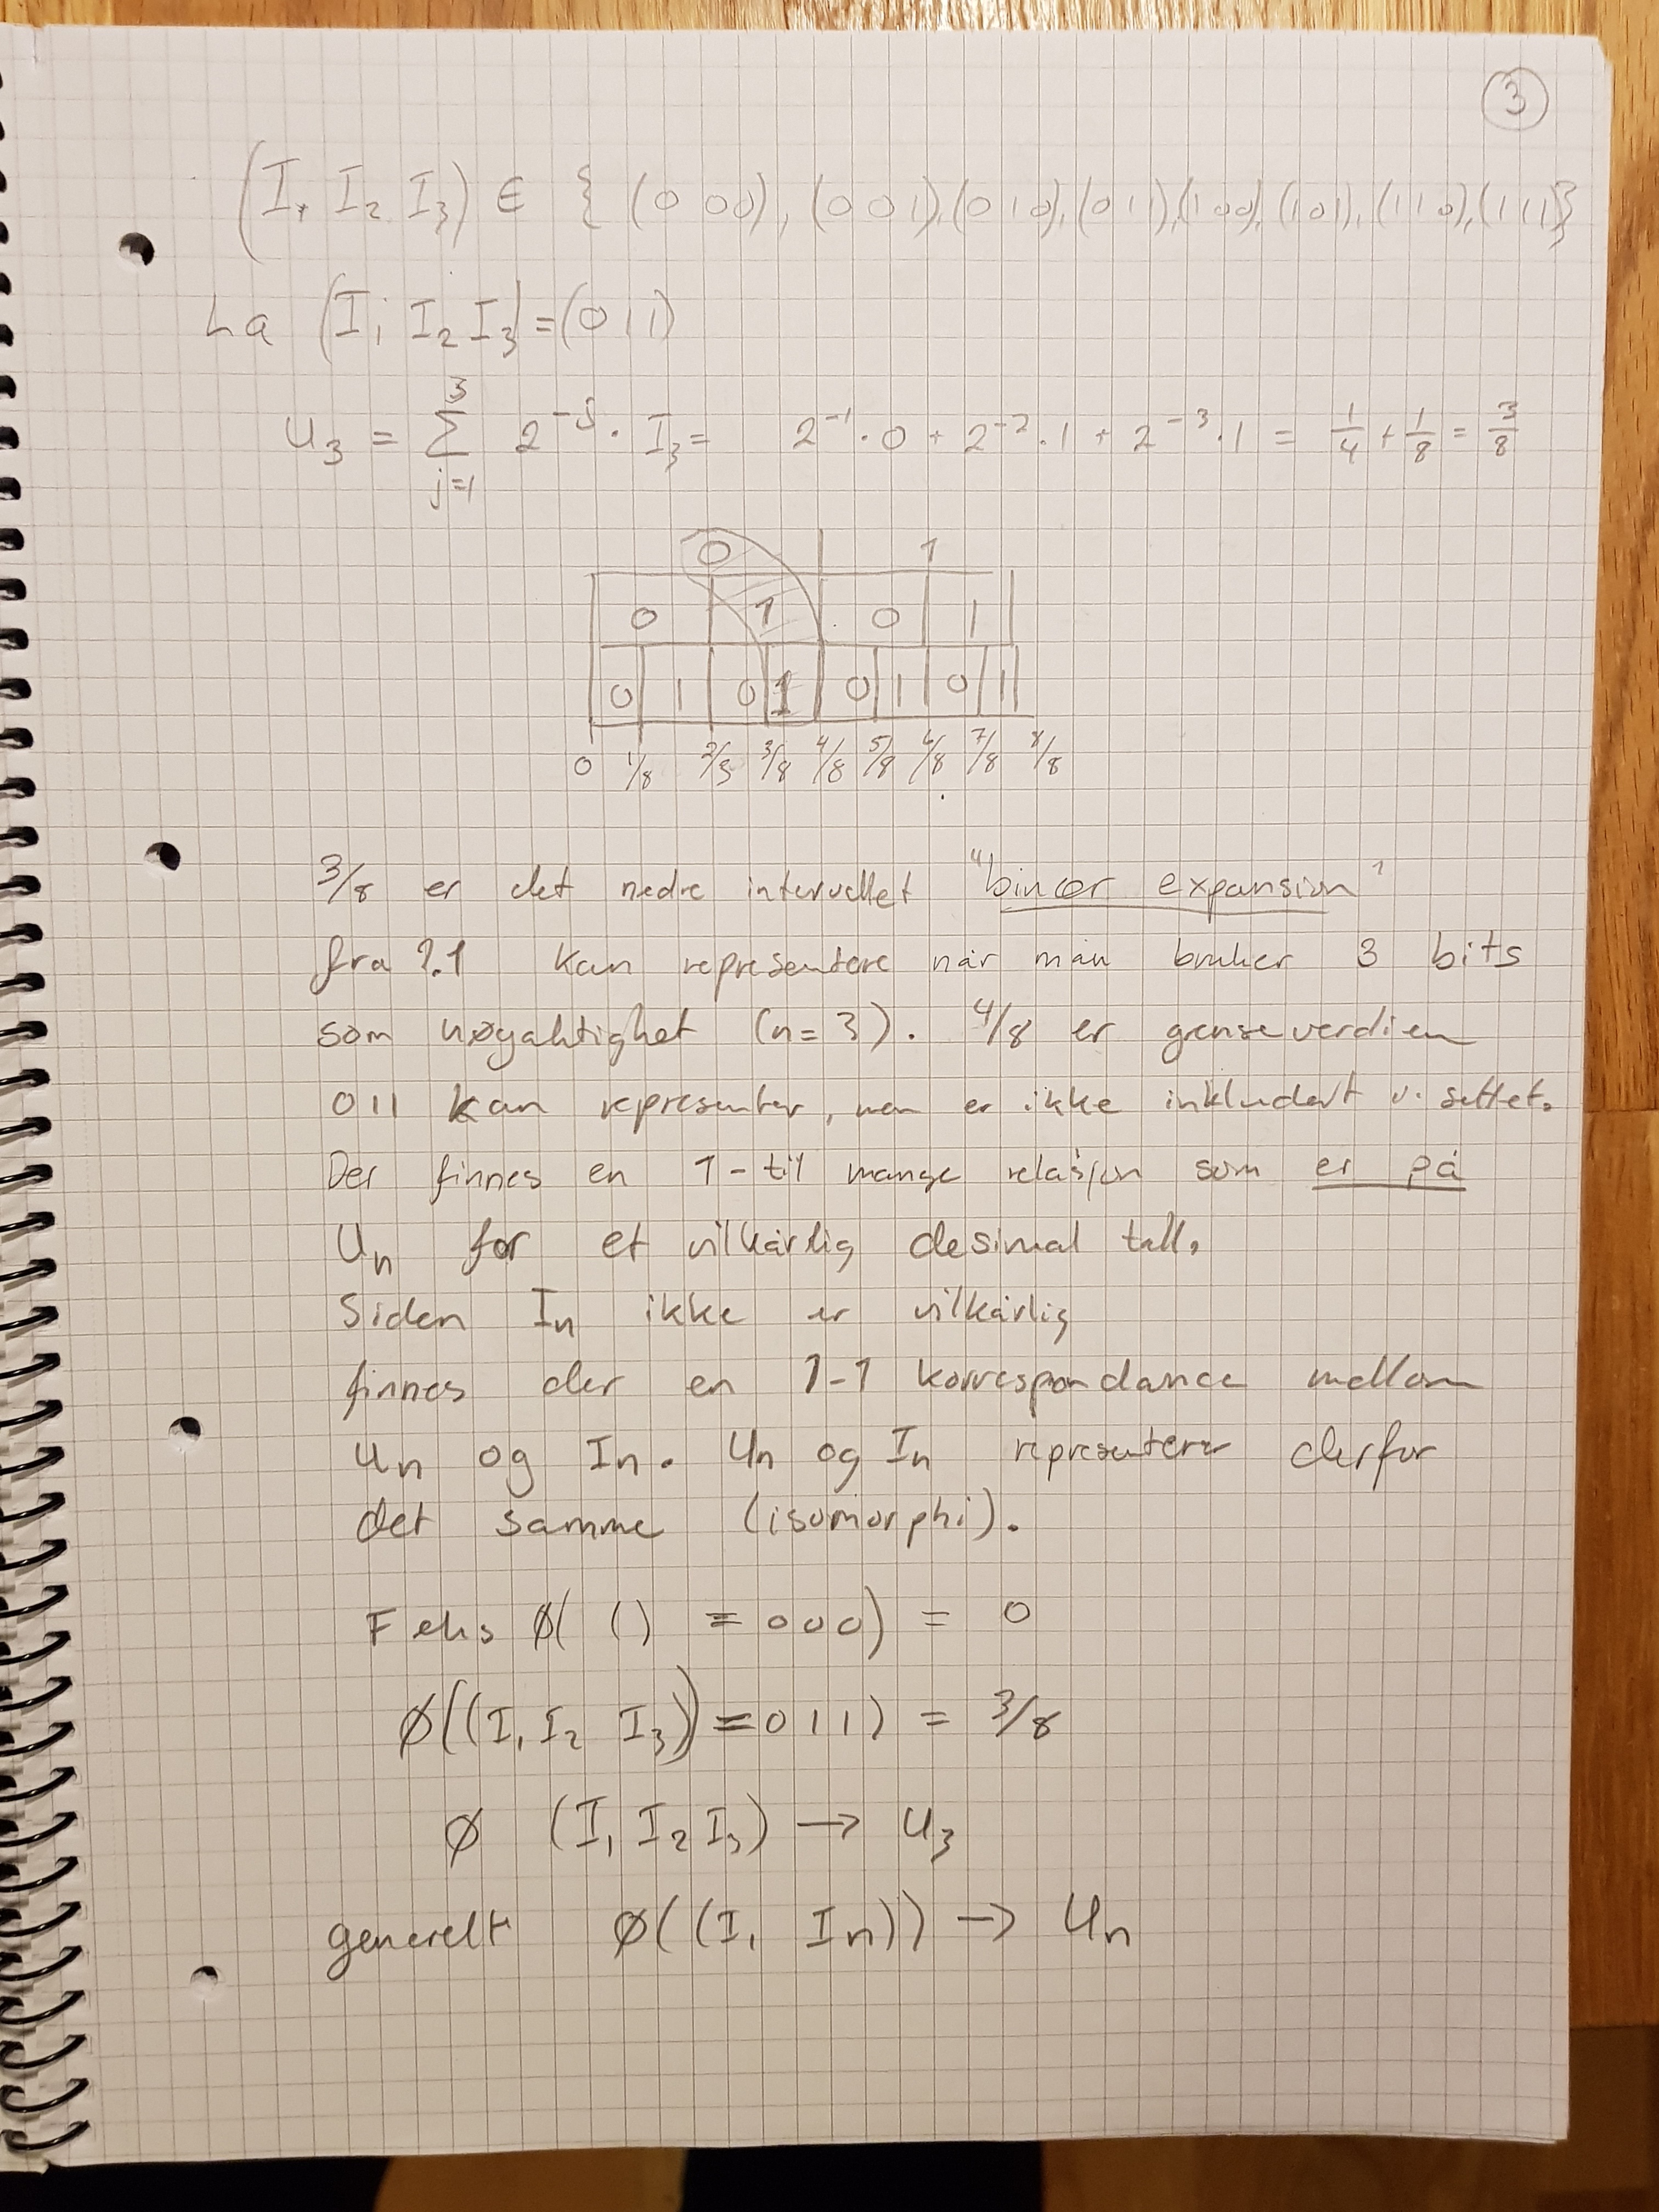 3
(I₁ I₂ I₃) ∈ { (000), (001), (010), (011), (100), (101), (110), (111)}
La (I₁ I₂ I₃) = (011)
U₃ = ∑_{j=1}^{3} 2^{-j} · I₃ = 2^{-1} · 0 + 2^{-2} · 1 + 2^{-3} · 1 = 1/4 + 1/8 = 3/8
0 1
0 1 0 1
0 1 0 1 0 1 0 1
0 1/8 2/8 3/8 4/8 5/8 6/8 7/8 8/8
3/8 er det nedre intervallet "binær expansion"
fra 2.1 kan representere når man bruker 3 bits
som nøyaktighet (n=3). 4/8 er grenseverdien
011 kan representer, men er ikke inkludert i settet.
Der finnes en 1-til mange relasjon som er på
Uₙ for et vilkårlig desimal tall.
Siden Iₙ ikke er vilkårlig
finnes der en 1-1 korrespondance mellom
Uₙ og Iₙ. Uₙ og Iₙ representerer derfor
det samme (isomorphi).
F eks Ø( () = 000) = 0
Ø((I₁ I₂ I₃) = 011) = 3/8
Ø (I₁ I₂ I₃) → U₃
generelt Ø((I₁ Iₙ)) → Uₙ